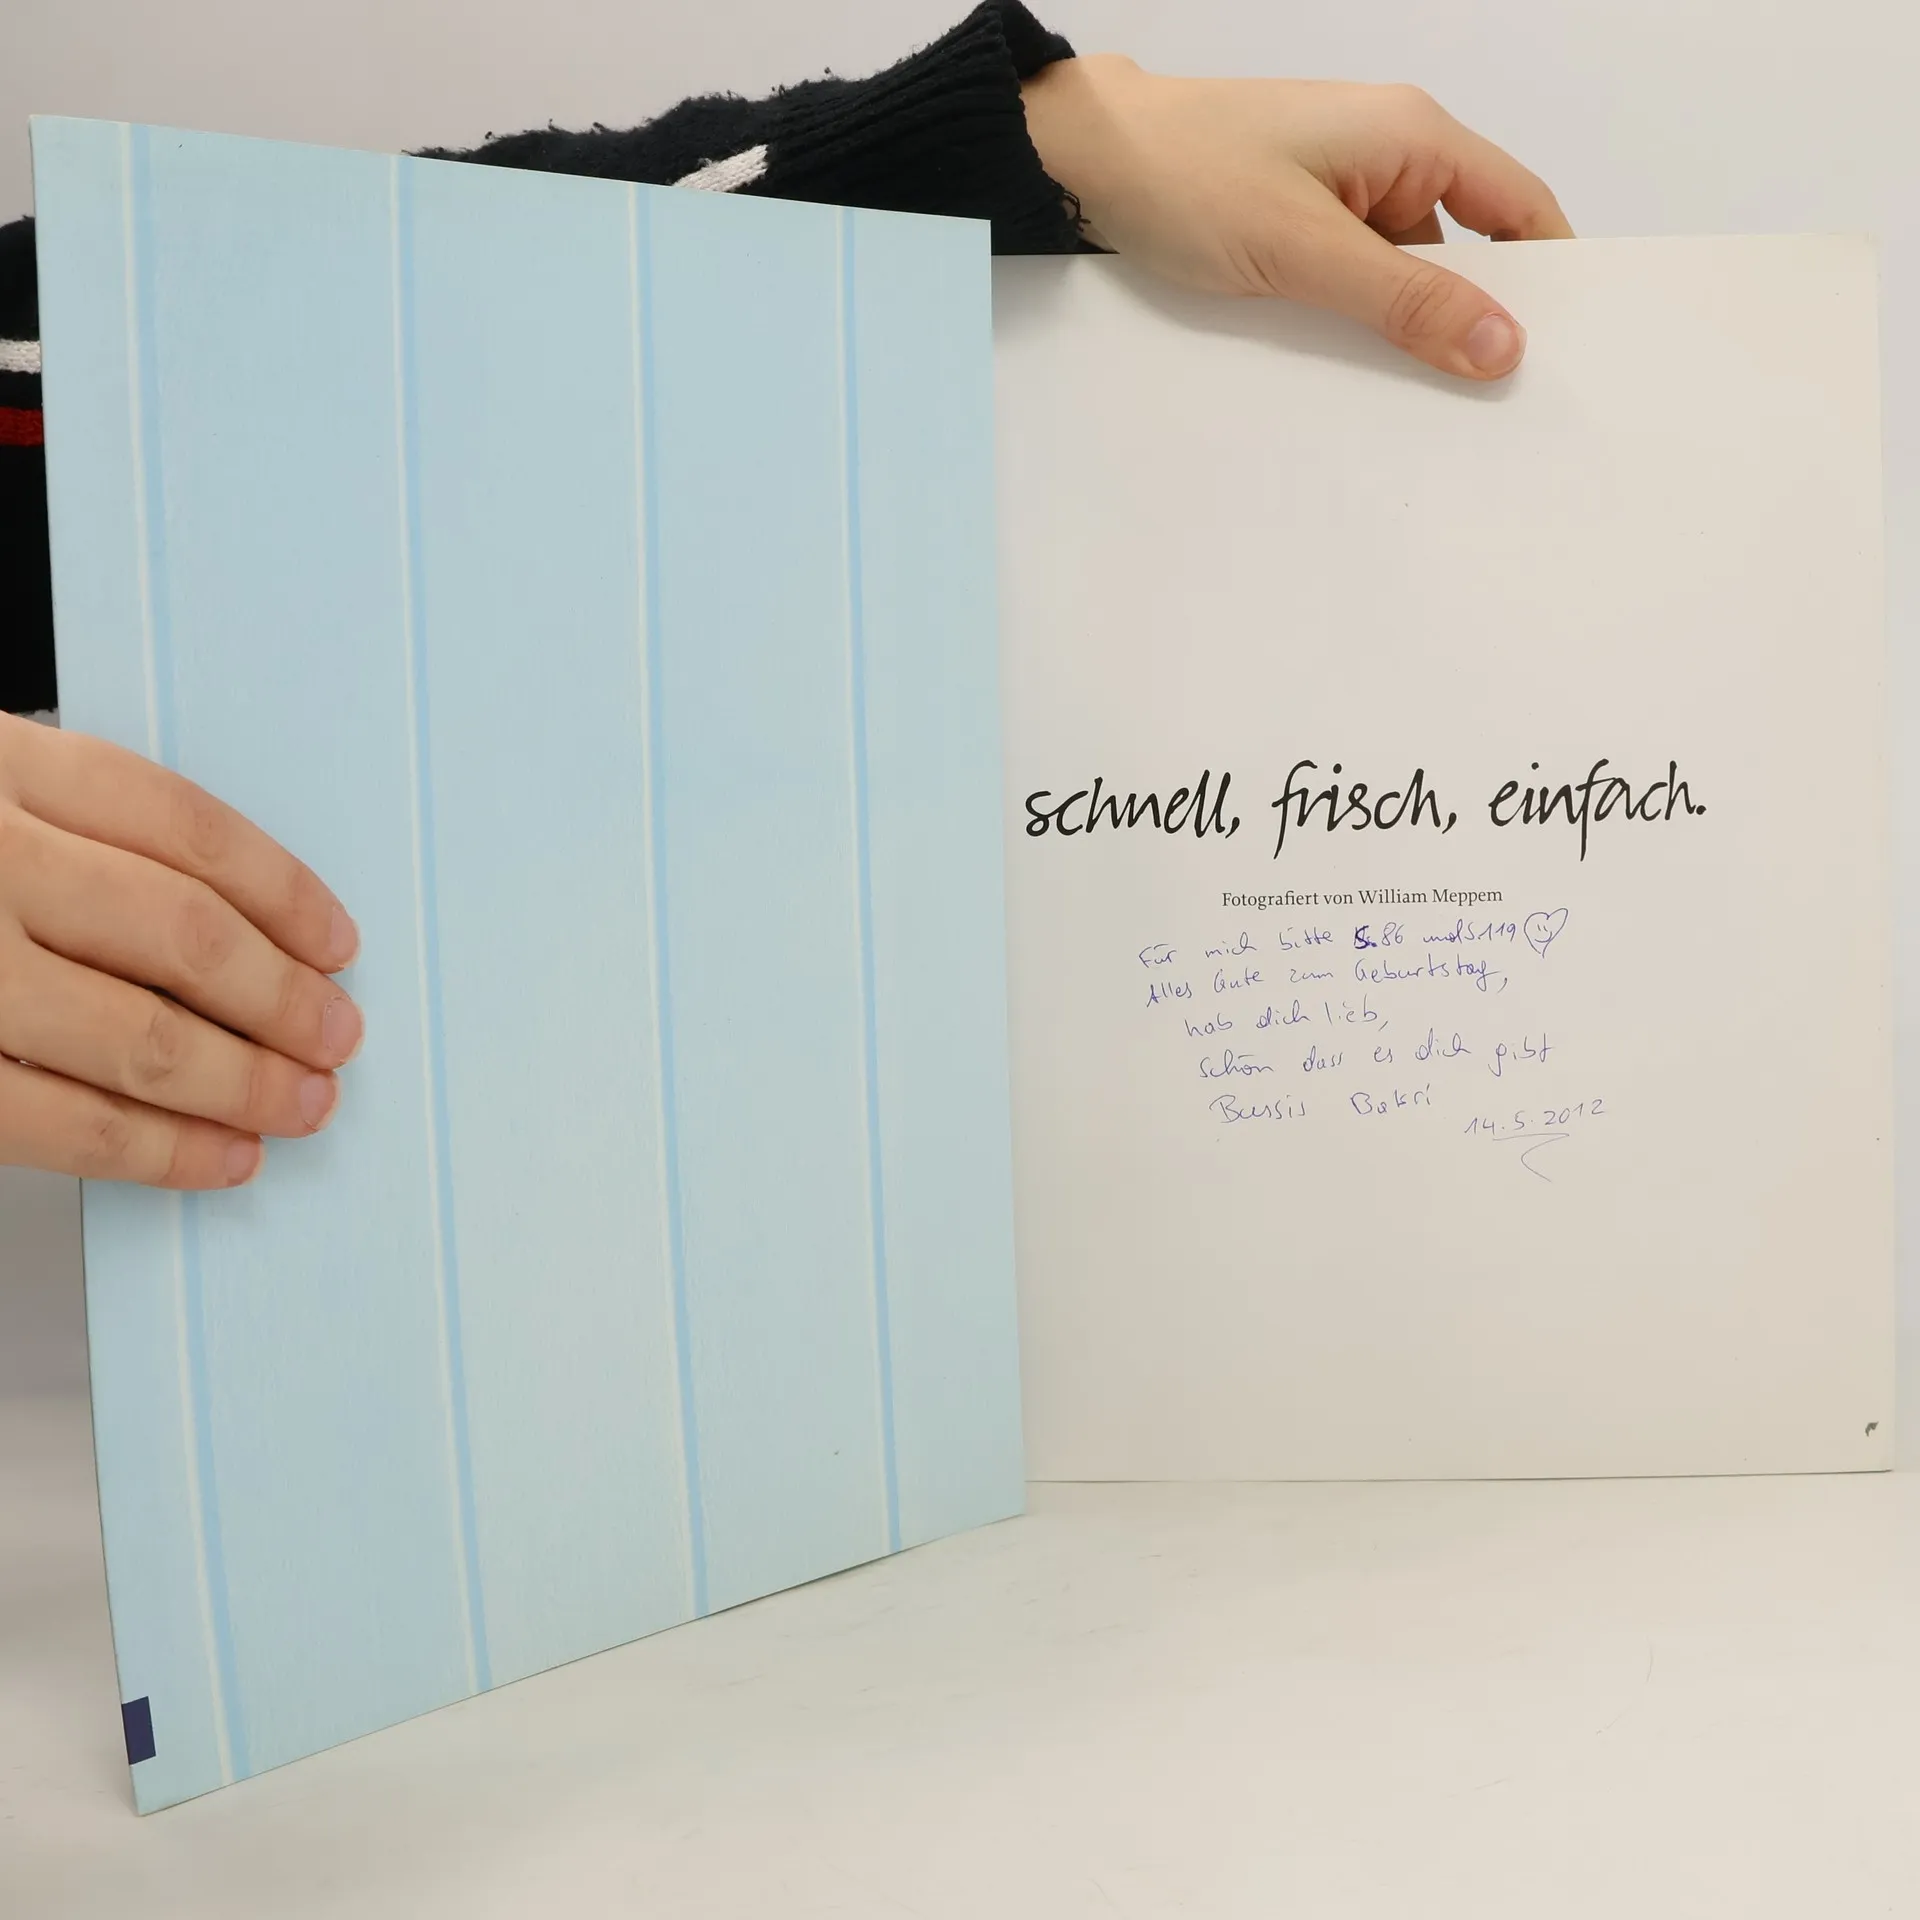 schnell, frisch, einfach.
Fotografiert von William Meppem
Für mich bitte S. 86 und S. 119
Alles Gute zum Geburtstag,
hab dich lieb,
schön dass es dich gibt
Bussis
14.5.2012